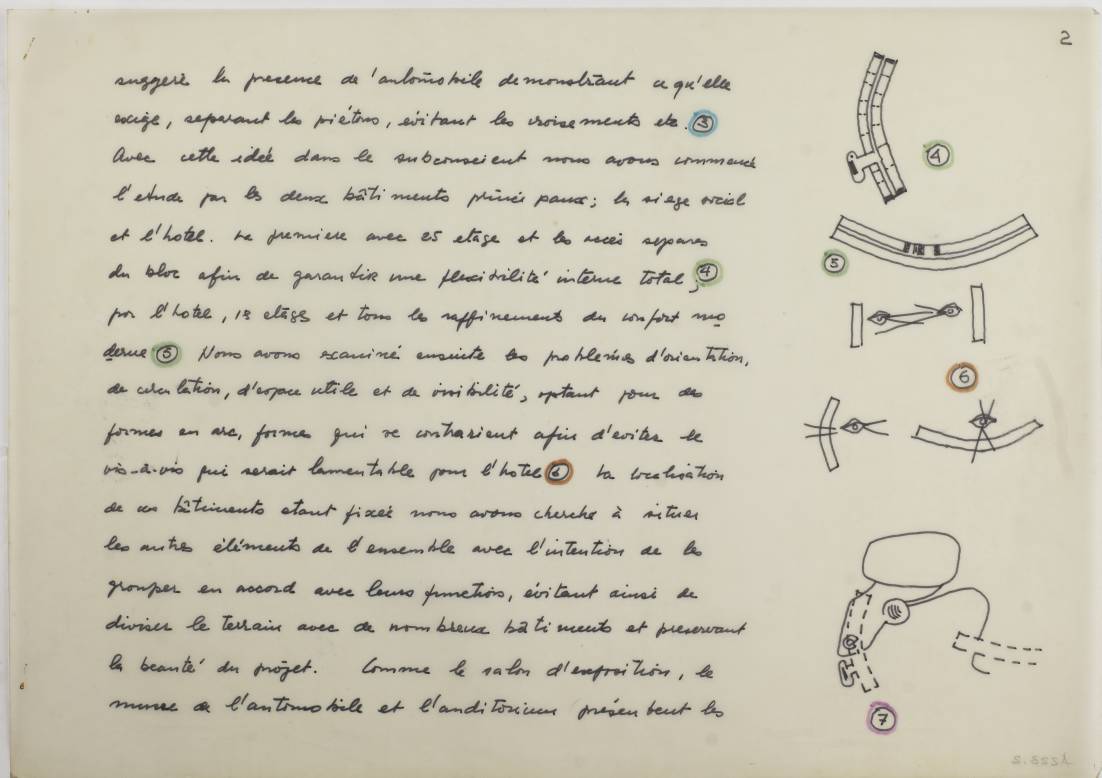 2
suggere la presence de l'automobile demonstrant ce qu'elle
exige, separant les piétons, évitant les croisements etc. 3
Avec cette idée dans le subconscient nous avons commencé
l'etude par les deux bâtiments principaux; le siege social
et l'hotel. La premiere avec 25 etage et les accès separes
du bloc afin de garantir une flexibilité interne total, 4
por l'hotel, etages et tous les raffinements du confort mo
derne 5 Nous avons examiné ensuite les problemes d'orientation,
de circulation, d'espace utile et de visibilité, optant pour des
formes en arc, formes qui se contrarient afin d'eviter le
vis-à-vis qui serait lamentable pour l'hotel 6 La localisation
de ces bâtiments etant fixée nous avons cherché à situer
les autres éléments de l'ensemble avec l'intention de les
grouper en accord avec leurs functions, évitant ainsi de
diviser le terrain avec de nombreux bâtiments et preservant
la beauté du projet. Comme le salon d'exposition, le
musee de l'automobile et l'auditorium présentent les
4
5
6
7